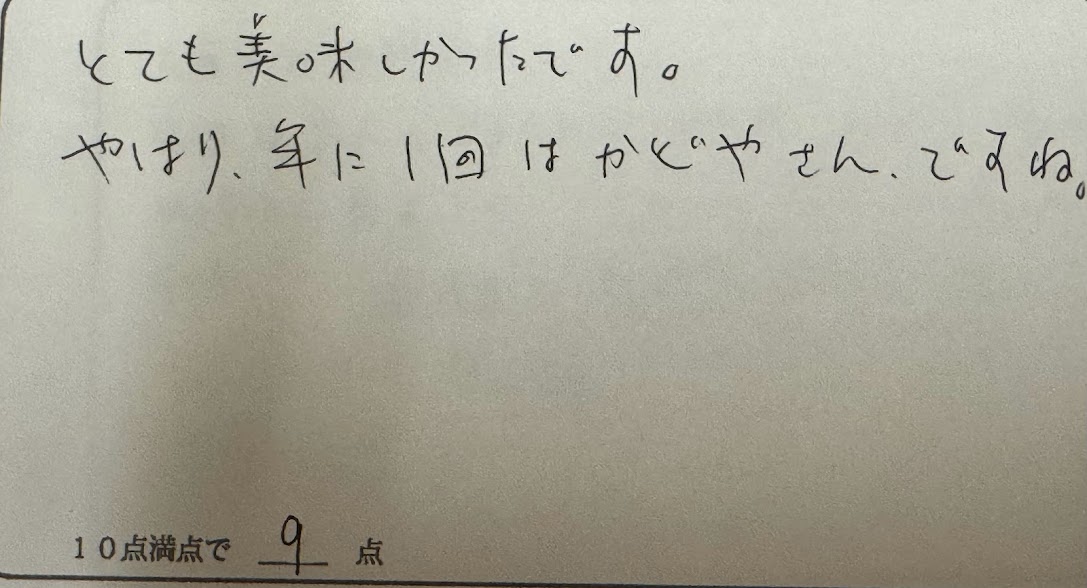 とても美味しかったです。
やはり、年に1回はかどやさん、ですね。
10点満点で 9 点